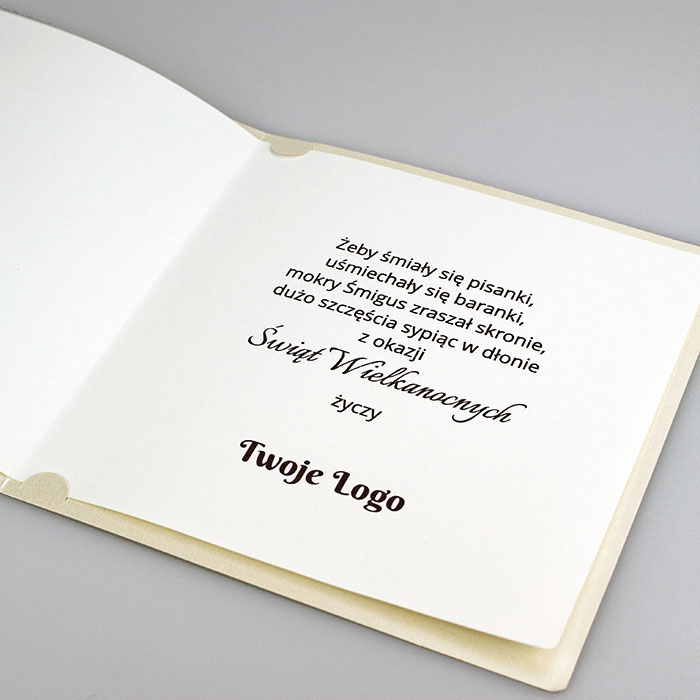 Żeby śmiały się pisanki,
uśmiechały się baranki,
mokry Śmigus zraszał skronie,
dużo szczęścia sypiąc w dłonie
z okazji
Świąt Wielkanocnych
życzy
Twoje Logo